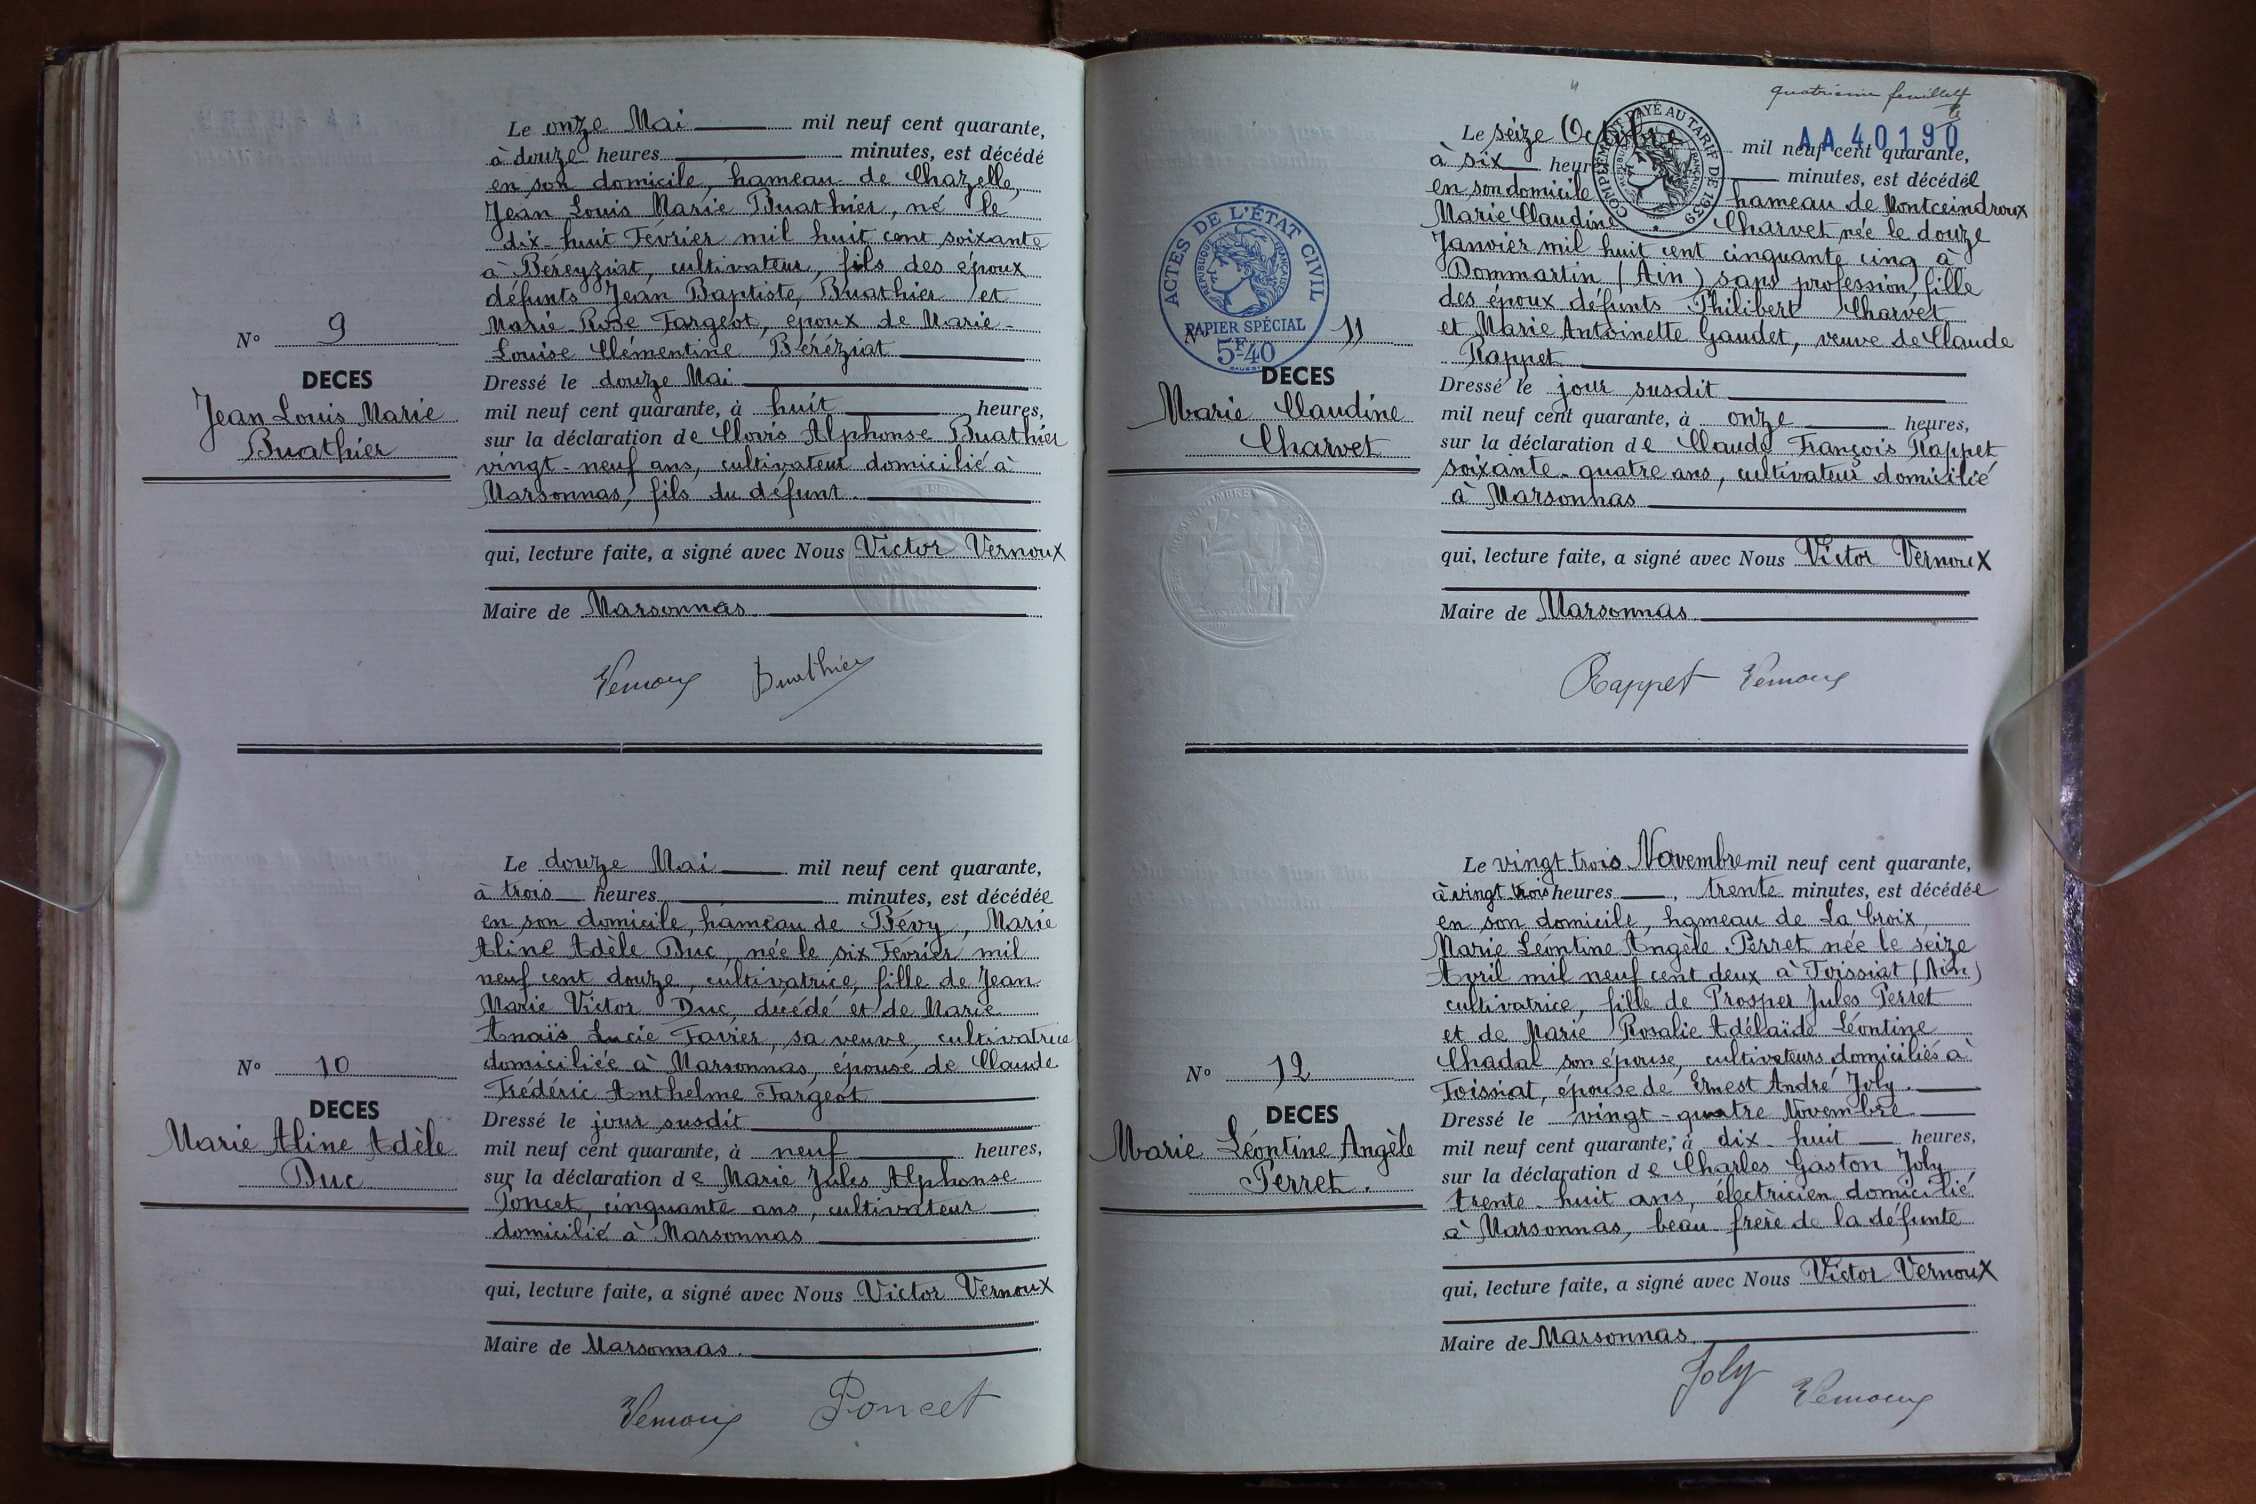 Le onze Mai mil neuf cent quarante,
à douze heures minutes, est décédé
en son domicile, hameau de Chazelle,
Jean Louis Marie Buathier, né le
dix-huit Février mil huit cent soixante
à Béreyziat, cultivateur, fils des époux
défunts Jean Baptiste Buathier et
Marie Rose Fargeot, époux de Marie-
Louise Clémentine Béréziat
N° 9
DECES
Jean Louis Marie
Buathier
Dressé le douze Mai
mil neuf cent quarante, à huit heures,
sur la déclaration de Clovis Alphonse Buathier
vingt-neuf ans, cultivateur domicilié à
Marsonnas, fils du défunt
qui, lecture faite, a signé avec Nous Victor Vernoux
Maire de Marsonnas.
Vernoux Buathier
Le douze Mai mil neuf cent quarante,
à trois heures minutes, est décédée
en son domicile, hameau de Bévy, Marie
Aline Adèle Duc, née le six Février mil
neuf cent douze, cultivatrice, fille de Jean
Marie Victor Duc, décédé et de Marie
Anaïs Lucie Favier, sa veuve, cultivatrice
domiciliée à Marsonnas, épouse de Claude
Frédéric Anthelme Fargeot
N° 10
DECES
Marie Aline Adèle
Duc
Dressé le jour susdit
mil neuf cent quarante, à neuf heures,
sur la déclaration de Marie Jules Alphonse
Poncet, cinquante ans, cultivateur
domicilié à Marsonnas
qui, lecture faite, a signé avec Nous Victor Vernoux
Maire de Marsonnas.
Vernoux Poncet
quatrième feuillet
AA 40190
COMPLÉMENT PAYÉ AU TARIF DE 1939
ACTES DE L'ÉTAT CIVIL
RÉPUBLIQUE FRANÇAISE
PAPIER SPÉCIAL
5F40
Le seize Octobre mil neuf cent quarante,
à six heures minutes, est décédée
en son domicile hameau de Montceindroux
Marie Claudine Charvet née le douze
Janvier mil huit cent cinquante cinq à
Dommartin (Ain) sans profession, fille
des époux défunts Philibert Charvet
et Marie Antoinette Gaudet, veuve de Claude
Rappet
N° 11
DECES
Marie Claudine
Charvet
Dressé le jour susdit
mil neuf cent quarante, à onze heures,
sur la déclaration de Claude François Rappet
soixante-quatre ans, cultivateur domicilié
à Marsonnas
qui, lecture faite, a signé avec Nous Victor Vernoux
Maire de Marsonnas.
Rappet Vernoux
Le vingt trois Novembre mil neuf cent quarante,
à vingt trois heures, trente minutes, est décédée
en son domicile, hameau de La Croix
Marie Léontine Angèle Perret née le seize
Avril mil neuf cent deux à Foissiat (Ain)
cultivatrice, fille de Prosper Jules Perret
et de Marie Rosalie Adélaïde Léontine
Chadal son épouse, cultivateurs domiciliés à
Foissiat, épouse de Ernest André Joly.
N° 12
DECES
Marie Léontine Angèle
Perret.
Dressé le vingt-quatre Novembre
mil neuf cent quarante, à dix-huit heures,
sur la déclaration de Charles Gaston Joly
trente-huit ans, électricien domicilié
à Marsonnas, beau-frère de la défunte
qui, lecture faite, a signé avec Nous Victor Vernoux
Maire de Marsonnas.
Joly Vernoux